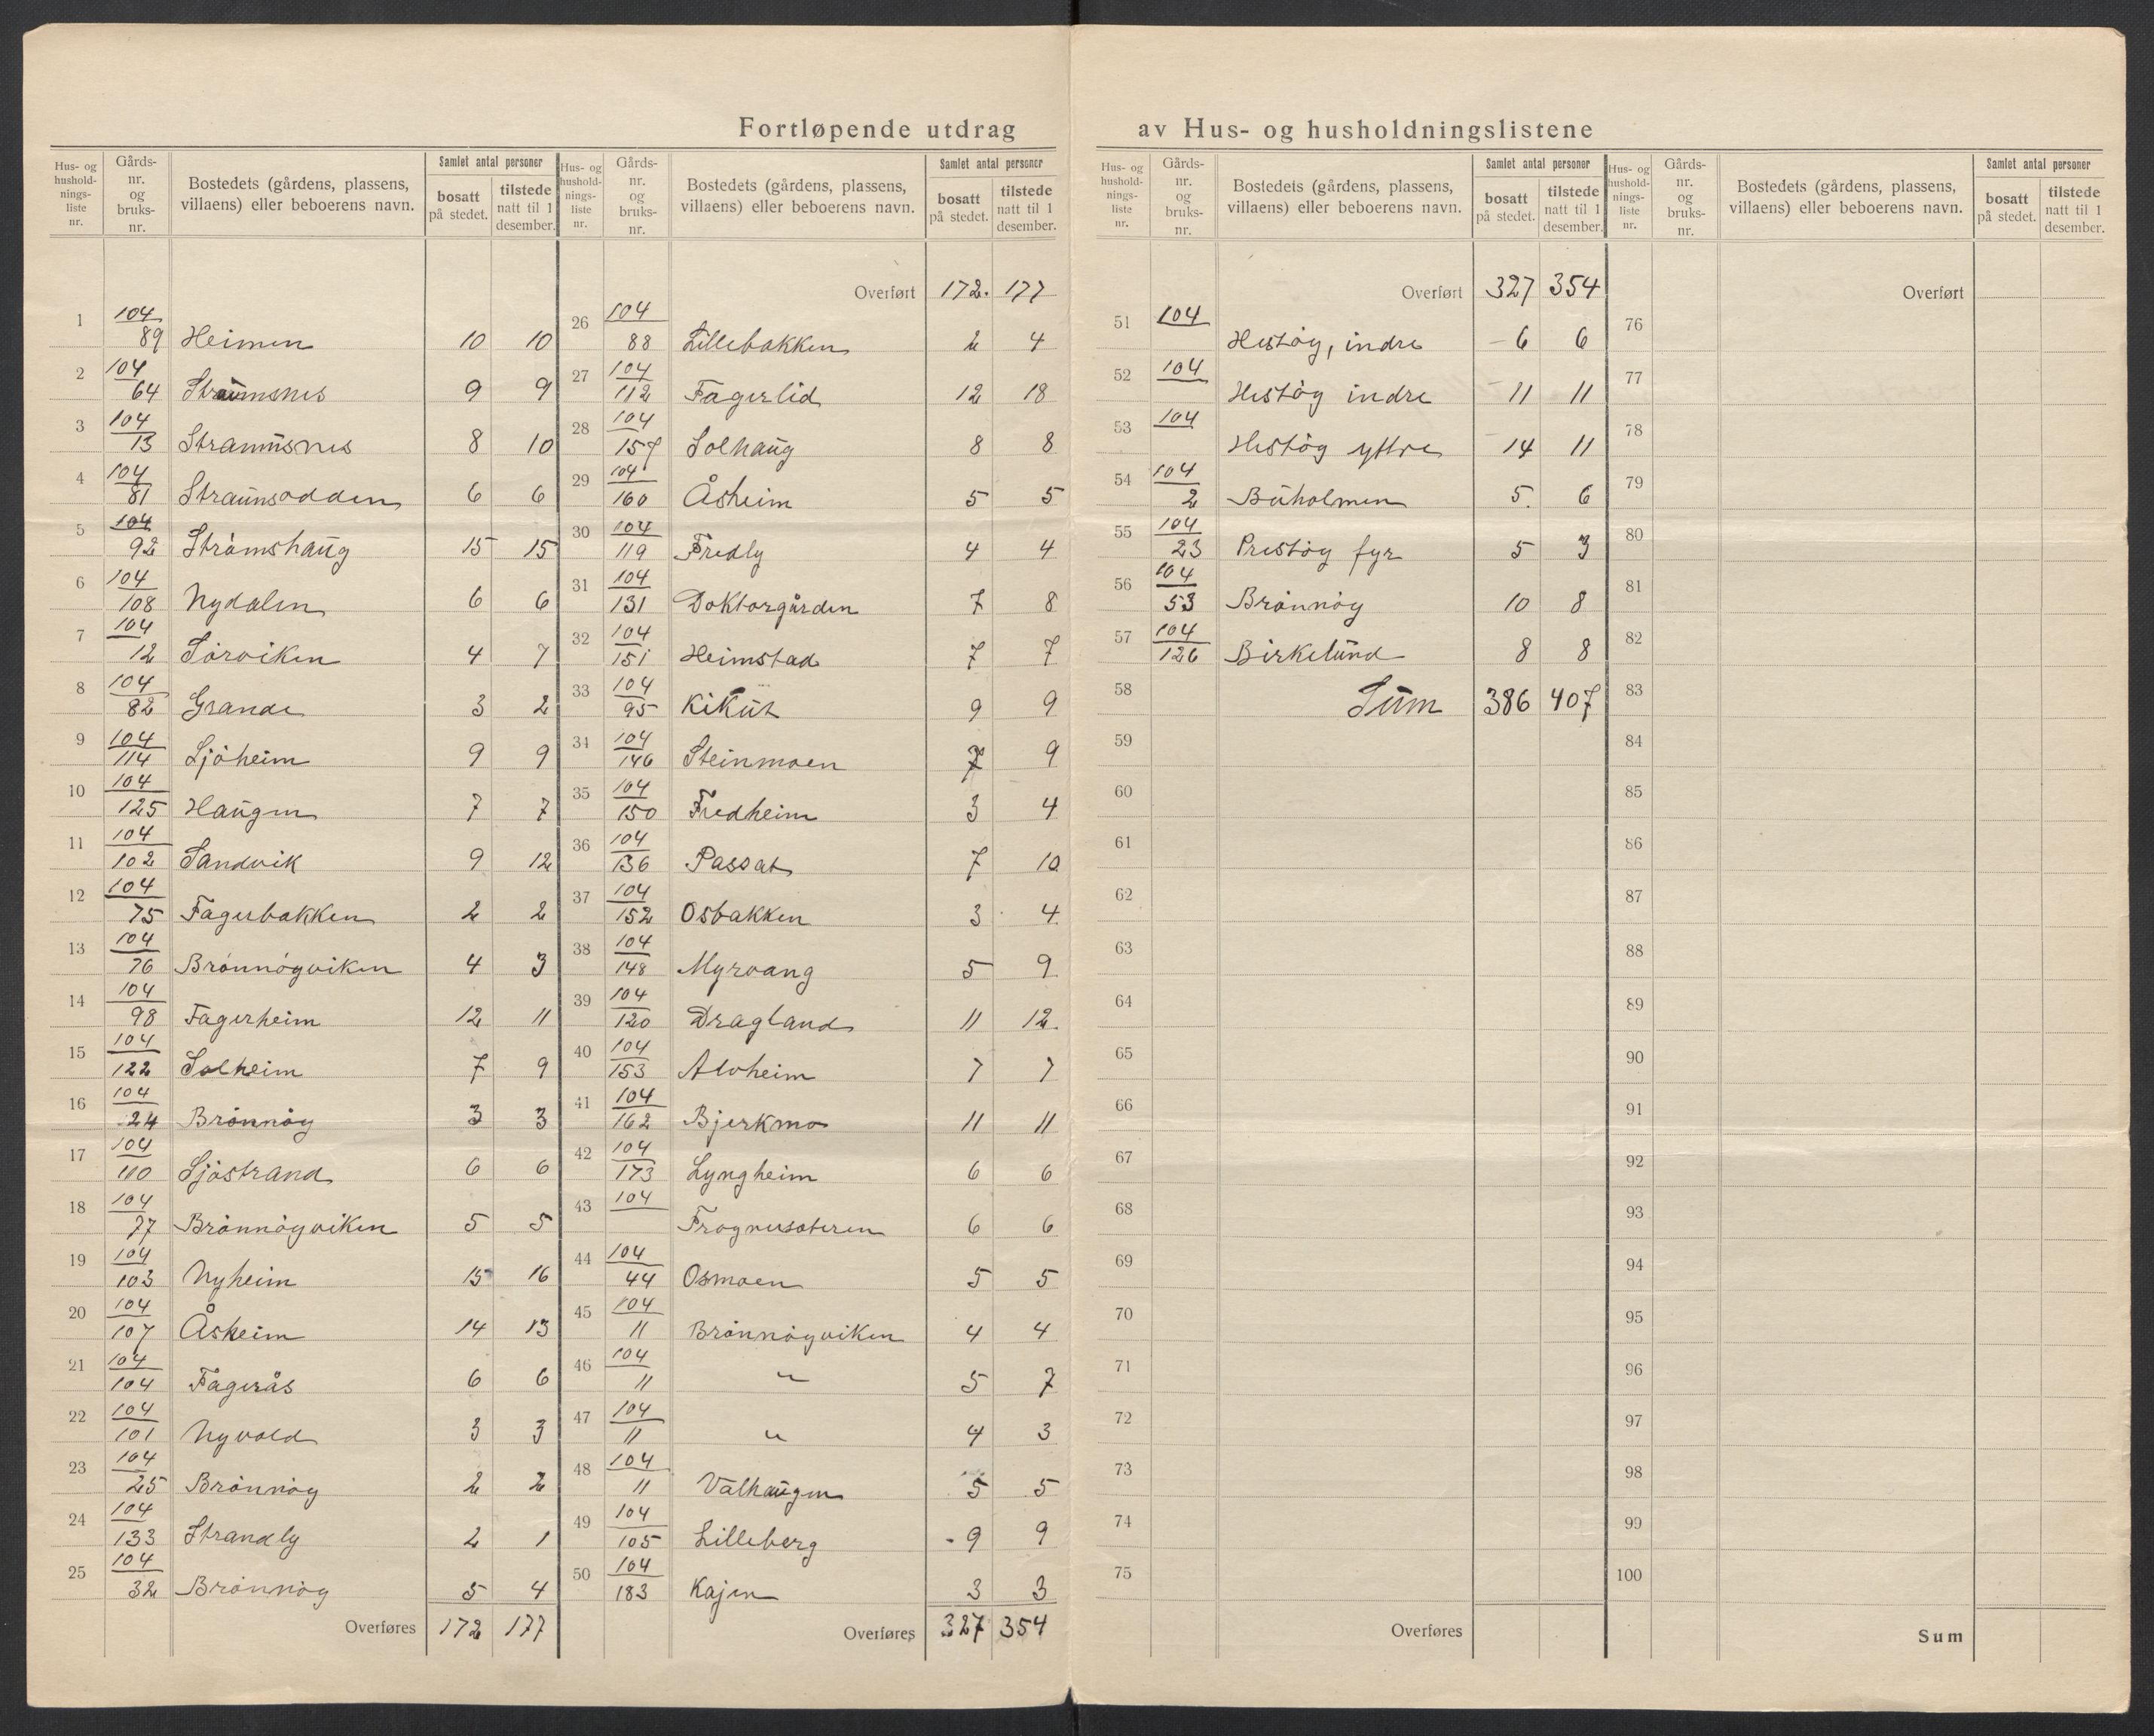 Fortløpende utdrag av Hus- og husholdningslistene
Hus- og husholdnings-liste nr. Gårds-nr. og bruks-nr. Bostedets (gårdens, plassens, villaens) eller beboerens navn. Samlet antal personer bosatt på stedet. tilstede natt til 1 desember.
1 104/89 Heimen 10 10
2 104/64 Straumsnes 9 9
3 104/13 Straumsnes 8 10
4 104/81 Straumsodden 6 6
5 104/92 Strömshaug 15 15
6 104/108 Nydalen 6 6
7 104/12 Sörviken 4 7
8 104/82 Grande 3 2
9 104/114 Sjöheim 9 9
10 104/125 Haugen 7 7
11 104/102 Sandvik 9 12
12 104/75 Fagerbakken 2 2
13 104/76 Brönnöyviken 4 3
14 104/98 Fagerheim 12 11
15 104/122 Solheim 7 9
16 104/24 Brönnöy 3 3
17 104/110 Sjöstrand 6 6
18 104/77 Brönnöyviken 5 5
19 104/103 Nyheim 15 16
20 104/107 Åsheim 14 13
21 104/104 Fagerås 6 6
22 104/101 Nyvold 3 3
23 104/25 Brönnöy 2 2
24 104/133 Strandly 2 1
25 104/32 Brönnöy 5 4
Overføres 172 177
Hus- og husholdnings-liste nr. Gårds-nr. og bruks-nr. Bostedets (gårdens, plassens, villaens) eller beboerens navn. Samlet antal personer bosatt på stedet. tilstede natt til 1 desember.
Overført 172. 177
26 104/88 Lillebakken 2 4
27 104/112 Fagerlid 12 18
28 104/157 Solhaug 8 8
29 104/160 Åsheim 5 5
30 104/119 Fredly 4 4
31 104/131 Doktorgården 7 8
32 104/151 Heimstad 7 7
33 104/95 Kikut 9 9
34 104/146 Steinmoen 7 9
35 104/150 Fredheim 3 4
36 104/136 Passat 7 10
37 104/152 Osbakken 3 4
38 104/148 Myrvang 5 9
39 104/120 Dragland 11 12.
40 104/153 Alvheim 7 7
41 104/162 Bjerkmo 11 11
42 104/173 Lyngheim 6 6
43 104 Frognersæteren 6 6
44 104/44 Osmoen 5 5
45 104/11 Brönnöyviken 4 4
46 104/11 " 5 7
47 104/11 " 4 3
48 104/11 Valhaugen 5 5
49 104/105 Lilleberg 9 9
50 104/183 Kajen 3 3
Overføres 327 354
Hus- og husholdnings-liste nr. Gårds-nr. og bruks-nr. Bostedets (gårdens, plassens, villaens) eller beboerens navn. Samlet antal personer bosatt på stedet. tilstede natt til 1 desember.
Overført 327 354
51 104 Hestöy, indre 6 6
52 104 Hestöy indre 11 11
53 104 Hestöy yttre 14 11
54 104/2 Buholmen 5. 6
55 104/23 Prestöy fyr 5 3
56 104/53 Brönnöy 10 8
57 104/126 Birkelund 8 8
58 Sum 386 407
59
60
61
62
63
64
65
66
67
68
69
70
71
72
73
74
75
Overføres
Hus- og husholdnings-liste nr. Gårds-nr. og bruks-nr. Bostedets (gårdens, plassens, villaens) eller beboerens navn. Samlet antal personer bosatt på stedet. tilstede natt til 1 desember.
Overført
76
77
78
79
80
81
82
83
84
85
86
87
88
89
90
91
92
93
94
95
96
97
98
99
100
Sum